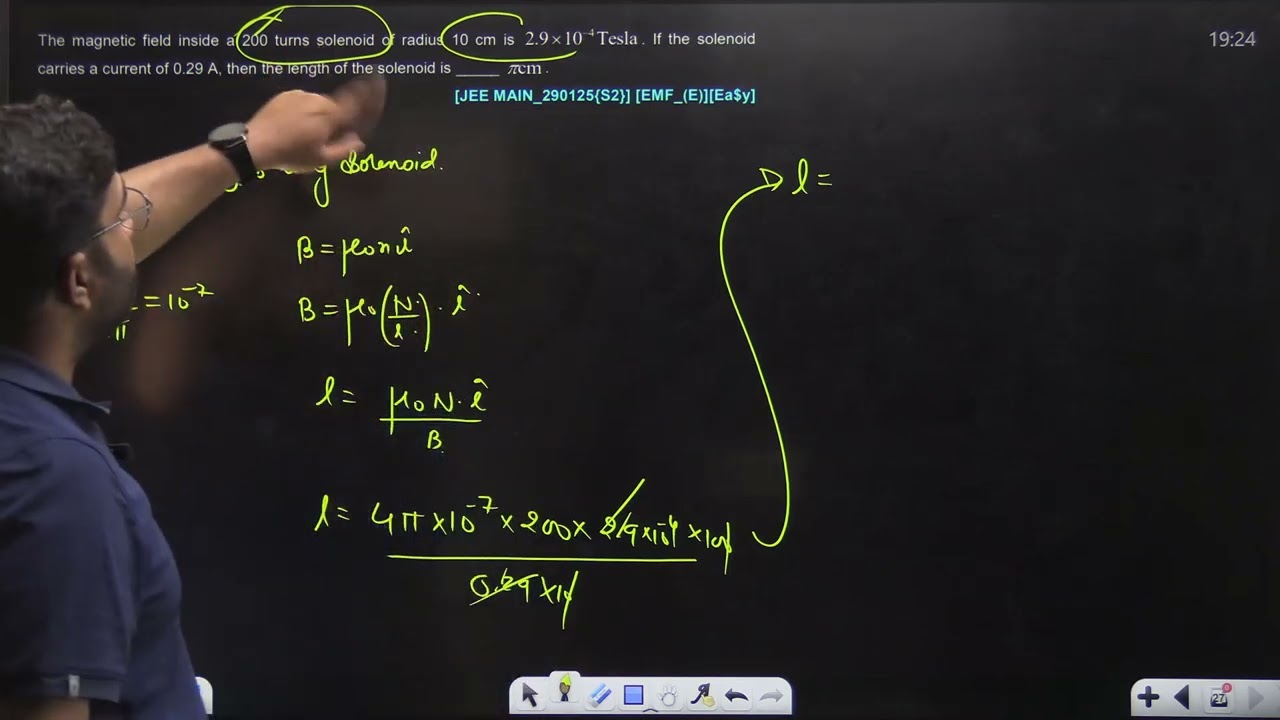 The magnetic field inside a 200 turns solenoid of radius 10 cm is 2.9×10⁻⁴ Tesla. If the solenoid
carries a current of 0.29 A, then the length of the solenoid is _____ πcm.
[JEE MAIN_290125{S2}] [EMF_(E)][Ea$y]
19:24
Solenoid.
B = μ0ni
B = μ0(N/l)·i
l = μ0N·i/B
= 10⁻⁷
π
l = 4π×10⁻⁷×200×2.9×10⁻⁴×10
0.29×10
l =
27